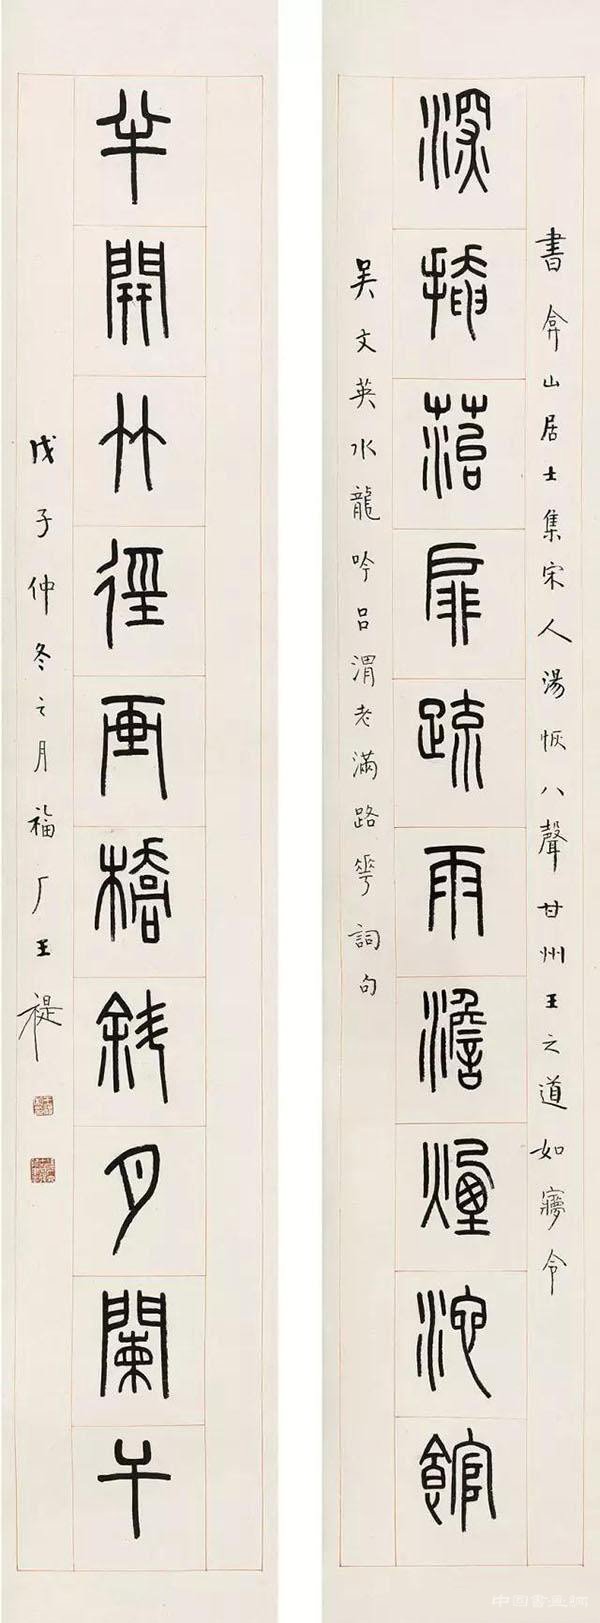 書弇山居士集宋人湯恢八聲甘州王之道如㝱令
深掩菭扉疏雨澹煙池館
吳文英水龍吟呂渭老滿路華詞句
半開竹徑畫橋斜月闌干
戊子仲冬之月福厂王禔
中国書画网